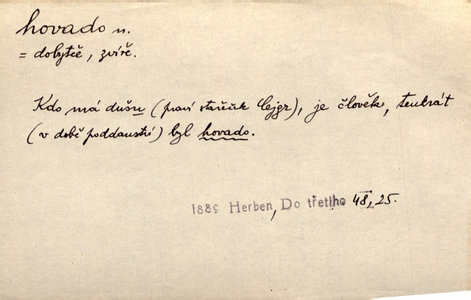 hovado n.
= dobytče, zvíře.
Kdo má dušu (praví stařičik Cejgr), je člověk, tenkrát
(v době poddanství) byl hovado.
1889 Herben, Do třetího 48, 25.